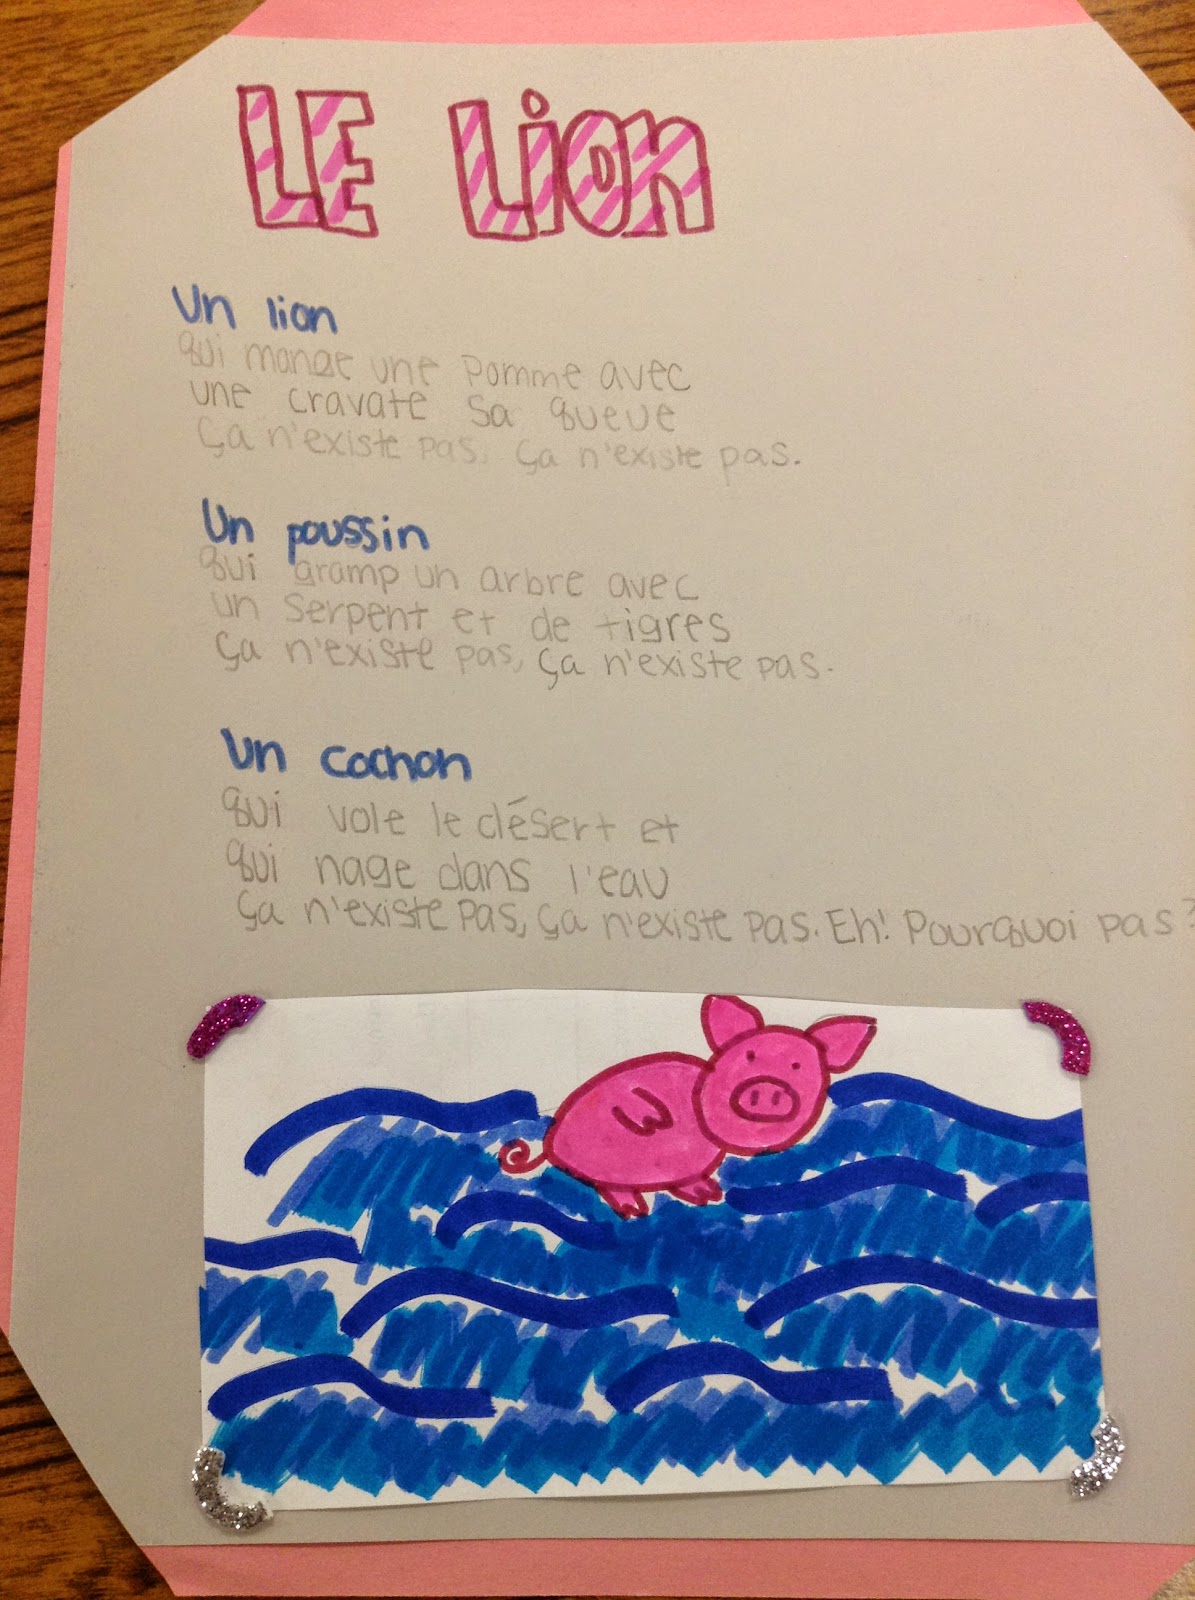 LE LiON
Un lion
qui mange une pomme avec
une cravate sa queue
Ça n'existe pas, ça n'existe pas.
Un poussin
qui gramp un arbre avec
un serpent et de tigres
ça n'existe pas, ça n'existe pas.
Un cochon
qui vole le désert et
qui nage dans l'eau
ça n'existe pas, ça n'existe pas. Eh! Pourquoi pas?